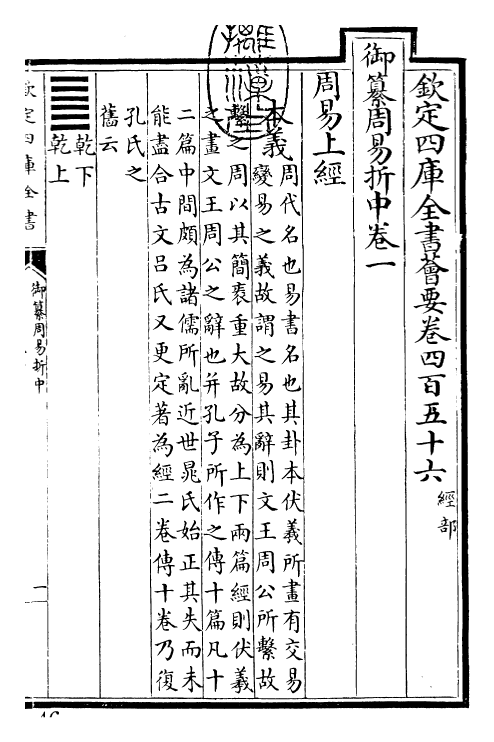 欽定四庫全書薈要卷四百五十六 經部
御纂周易折中卷一
周易上經
本義 周代名也易書名也其卦本伏羲所畫有交易
變易之義故謂之易其辭則文王周公所繫故
繫之周以其簡袠重大故分為上下兩篇經則伏羲
之畫文王周公之辭也并孔子所作之傳十篇凡十
二篇中間頗為諸儒所亂近世晁氏始正其失而未
能盡合古文呂氏又更定著為經二卷傳十卷乃復
孔氏之
舊云
乾下
乾上
欽定四庫全書
御纂周易折中
一